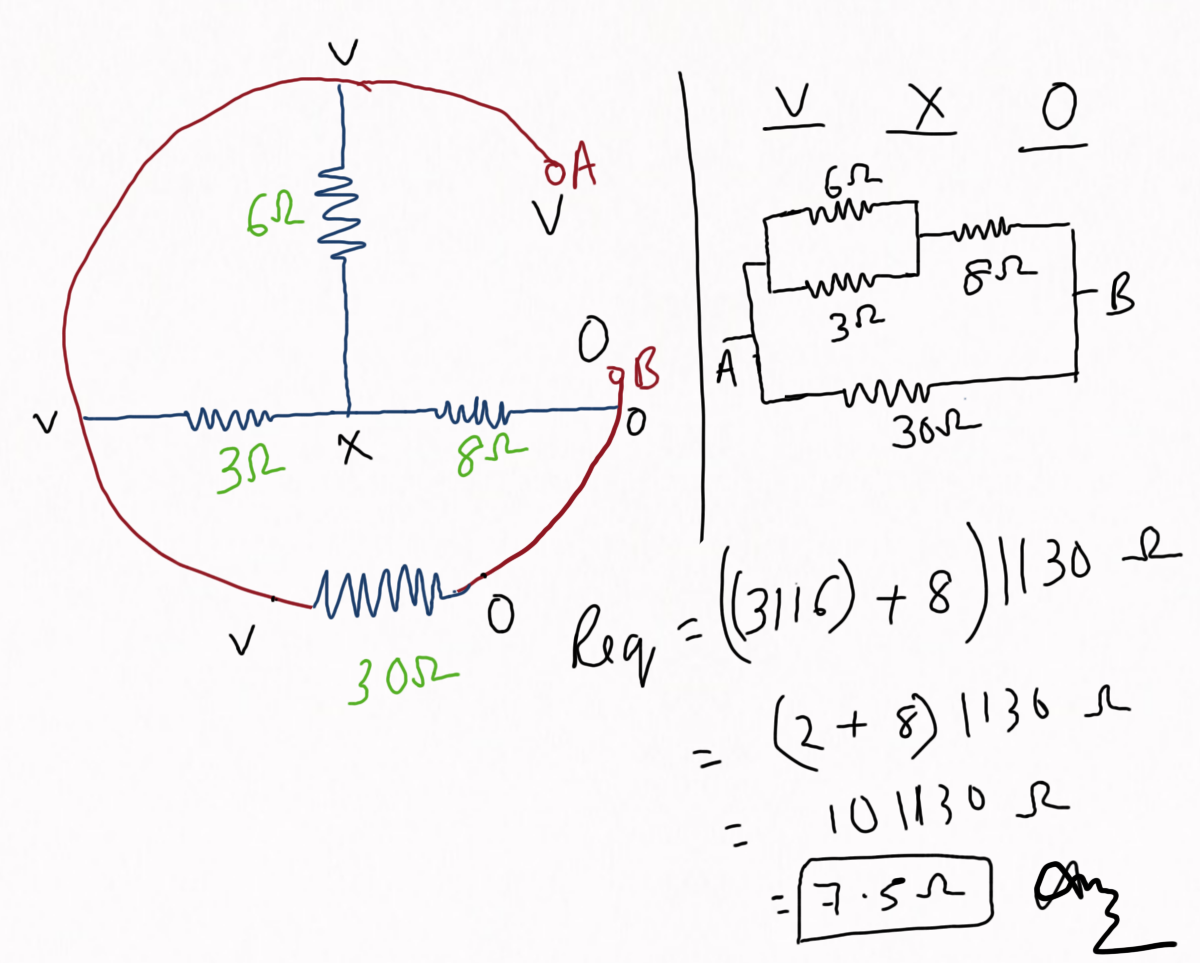 V
A
V
6Ω
O
B
V
O
3Ω
X
8Ω
V
O
30Ω
V X O
6Ω
8Ω
3Ω
B
A
30Ω
Req = ((3||6) + 8)||30 Ω
= (2 + 8) ||30 Ω
= 10||30 Ω
= 7.5Ω Ans